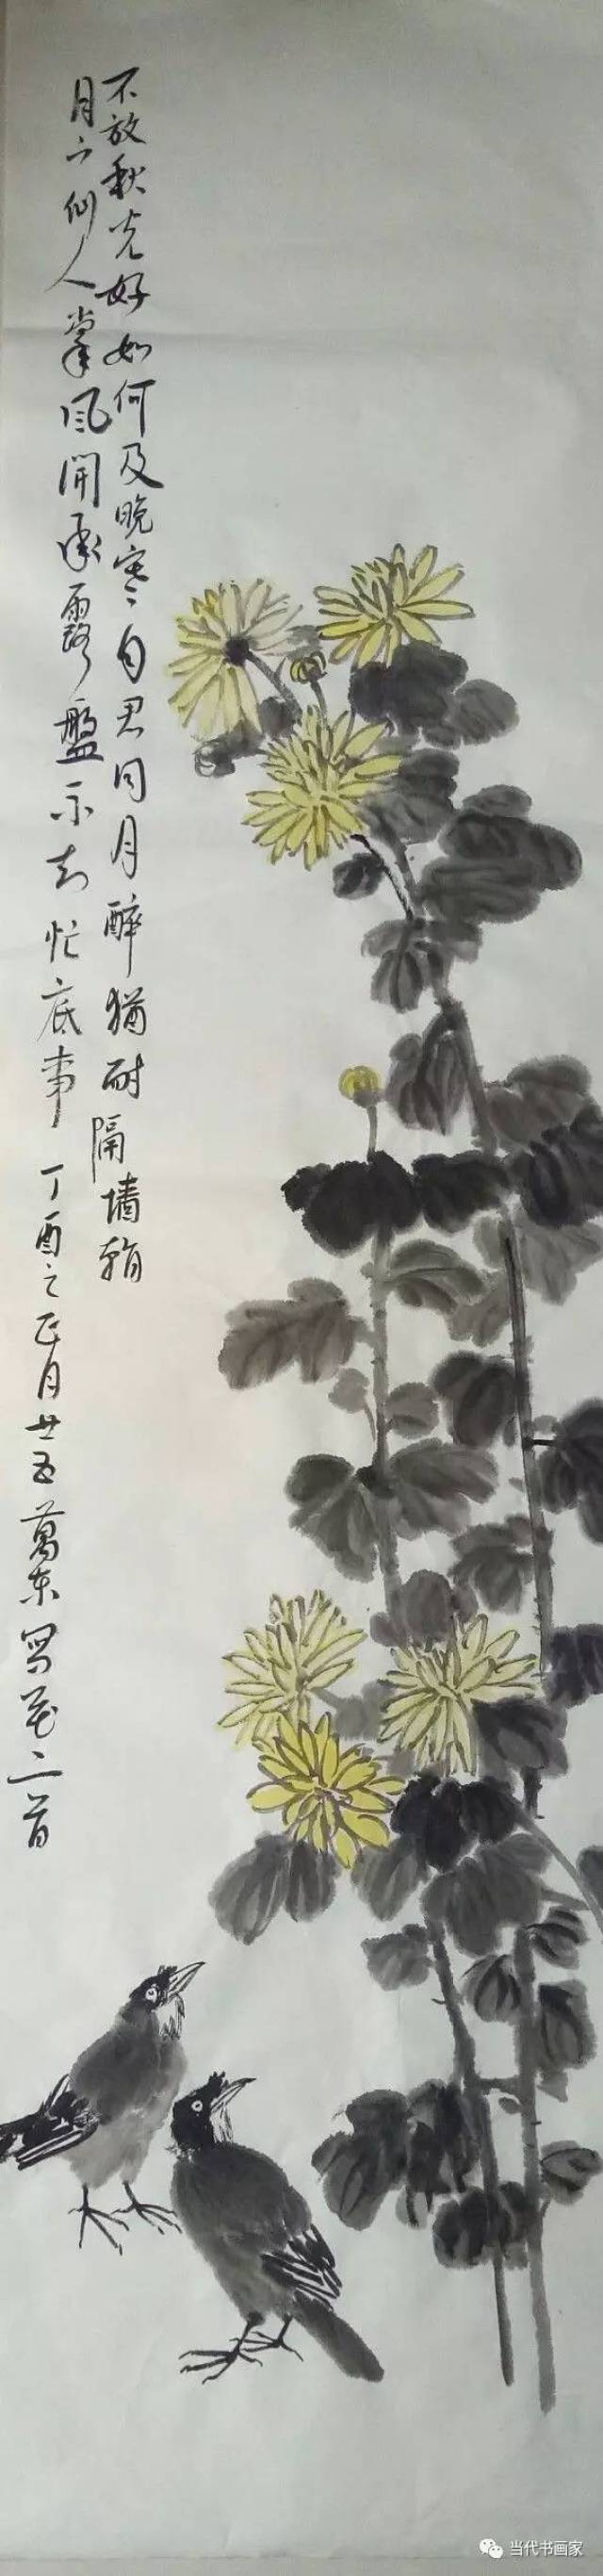 不放秋光好如何及晚寒与君同月醉犹耐隔墙
月下仙人掌風開承露盤不知忙底事丁酉之正月廿五萬东写花二首
当代书画家